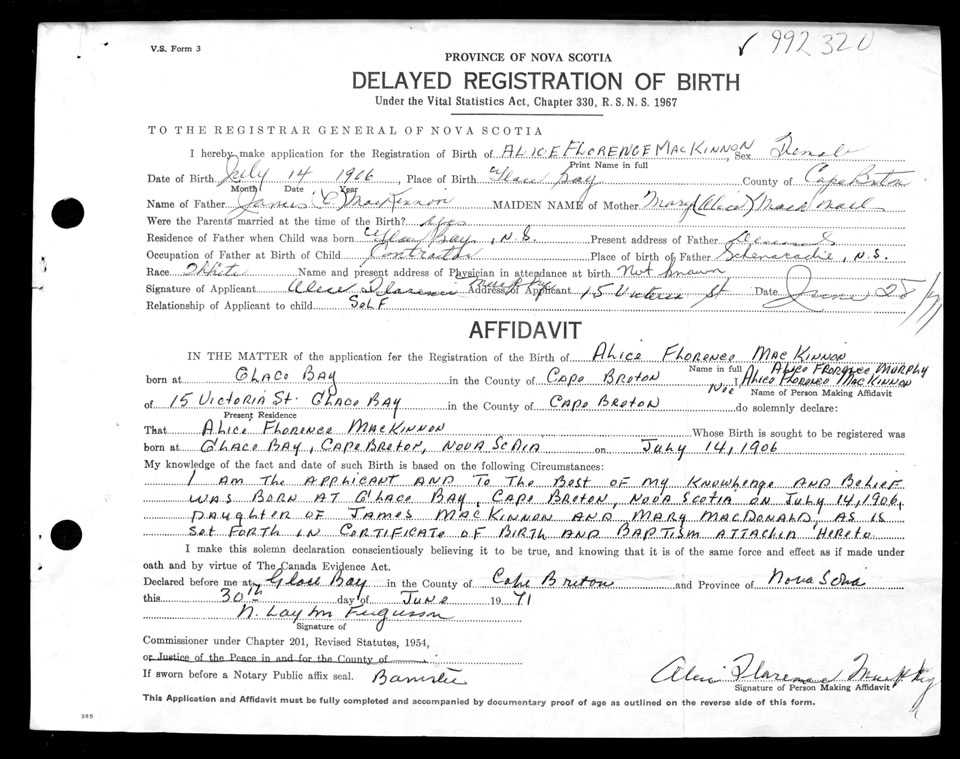 V.S. Form 3
✓ 992320
PROVINCE OF NOVA SCOTIA
DELAYED REGISTRATION OF BIRTH
Under the Vital Statistics Act, Chapter 330, R.S.N.S. 1967
TO THE REGISTRAR GENERAL OF NOVA SCOTIA
I hereby make application for the Registration of Birth of ALICE FLORENCE MACKINNON, Sex Female
Print Name in full
Date of Birth July 14 1906, Place of Birth Glace Bay County of Cape Breton
Month Date Year
Name of Father James (C) MacKinnon MAIDEN NAME of Mother Mary (Alice)
Were the Parents married at the time of the Birth? yes
Residence of Father when Child was born Glace Bay, N.S. Present address of Father
Occupation of Father at Birth of Child Contractor Place of birth of Father N.S.
Race White Name and present address of Physician in attendance at birth Not known
Signature of Applicant Alice Florence Murphy Address of Applicant 15 Victoria St Date June 28/71
Relationship of Applicant to child SELF
AFFIDAVIT
IN THE MATTER of the application for the Registration of the Birth of ALICE FLORENCE MACKINNON
Name in full ALICE FLORENCE MURPHY
born at GLACE BAY in the County of CAPE BRETON I, NEE ALICE FLORENCE MACKINNON
Name of Person Making Affidavit
of 15 VICTORIA ST. GLACE BAY in the County of CAPE BRETON do solemnly declare:
Present Residence
That ALICE FLORENCE MACKINNON Whose Birth is sought to be registered was
born at GLACE BAY, CAPE BRETON, NOVA SCOTIA on JULY 14, 1906
My knowledge of the fact and date of such Birth is based on the following Circumstances:
I AM THE APPLICANT AND TO THE BEST OF MY KNOWLEDGE AND BELIEF
WAS BORN AT GLACE BAY, CAPE BRETON, NOVA SCOTIA ON JULY 14, 1906,
DAUGHTER OF JAMES MACKINNON AND MARY MACDONALD, AS IS
SET FORTH IN CERTIFICATE OF BIRTH AND BAPTISM ATTACHED HERETO.
I make this solemn declaration conscientiously believing it to be true, and knowing that it is of the same force and effect as if made under
oath and by virtue of The Canada Evidence Act.
Declared before me at Glace Bay in the County of Cape Breton and Province of Nova Scotia
this 30th day of June 1971
N. Layton Fergusson
Signature of
Commissioner under Chapter 201, Revised Statutes, 1954,
or Justice of the Peace in and for the County of
If sworn before a Notary Public affix seal. Barrister
Alice Florence Murphy
Signature of Person Making Affidavit
This Application and Affidavit must be fully completed and accompanied by documentary proof of age as outlined on the reverse side of this form.
385